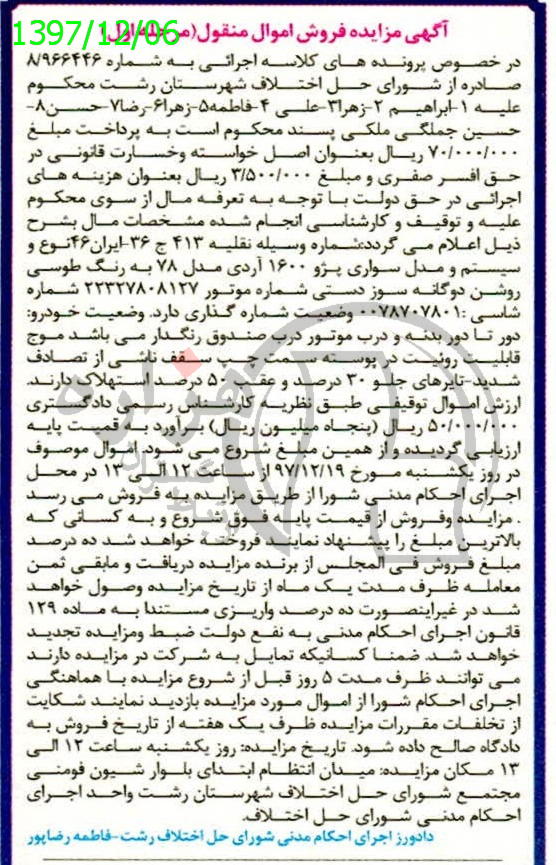 1397/12/06
آگهی مزایده فروش اموال منقول(مرحله اول)
در خصوص پرونده های کلاسه اجرائی به شماره ۸/۹۶۶۴۴۶
صادره از شورای حل اختلاف شهرستان رشت محکوم
علیه ۱-ابراهیم ۲-زهرا۳-علی ۴-فاطمه۵-زهرا۶-رضا۷-حسن۸-
حسین جملگی ملکی پسند محکوم است به پرداخت مبلغ
۷۰/۰۰۰/۰۰۰ ریال بعنوان اصل خواسته وخسارت قانونی در
حق افسر صفری و مبلغ ۳/۵۰۰/۰۰۰ ریال بعنوان هزینه های
اجرائی در حق دولت با توجه به تعرفه مال از سوی محکوم
علیه و توقیف و کارشناسی انجام شده مشخصات مال بشرح
ذیل اعلام می گردد:شماره وسیله نقلیه ۴۱۳ ج ۳۶-ایران۴۶نوع و
سیستم و مدل سواری پژو ۱۶۰۰ آردی مدل ۷۸ به رنگ طوسی
روشن دوگانه سوز دستی شماره موتور ۲۲۳۲۷۸۰۸۱۲۷ شماره
شاسی :۰۰۷۸۷۰۷۸۰۱ وضعیت شماره گذاری دارد. وضعیت خودرو:
دور تا دور بدنه و درب موتور درب صندوق رنگدار می باشد موج
قابلیت روئیت در پوسته سمت چپ سقف ناشی از تصادف
شدید-تایرهای جلو ۳۰ درصد و عقب ۵۰ درصد استهلاک دارند.
ارزش اموال توقیفی طبق نظریه کارشناس رسمی دادگستری
۵۰/۰۰۰/۰۰۰ ریال (پنجاه میلیون ریال) برآورد به قمیت پایه
ارزیابی گردیده و از همین مبلغ شروع می شود. اموال موصوف
در روز یکشنبه مورخ ۹۷/۱۲/۱۹ از ساعت ۱۲ الی ۱۳ در محل
اجرای احکام مدنی شورا از طریق مزایده به فروش می رسد
. مزایده وفروش از قیمت پایه فوق شروع و به کسانی که
بالاترین مبلغ را پیشنهاد نمایند فروخته خواهد شد ده درصد
مبلغ فروش فی المجلس از برنده مزایده دریافت و مابقی ثمن
معامله ظرف مدت یک ماه از تاریخ مزایده وصول خواهد
شد در غیراینصورت ده درصد واریزی مستندا به ماده ۱۲۹
قانون اجرای احکام مدنی به نفع دولت ضبط ومزایده تجدید
خواهد شد. ضمنا کسانیکه تمایل به شرکت در مزایده دارند
می توانند ظرف مدت ۵ روز قبل از شروع مزایده با هماهنگی
اجرای احکام شورا از اموال مورد مزایده بازدید نمایند شکایت
از تخلفات مقررات مزایده ظرف یک هفته از تاریخ فروش به
دادگاه صالح داده شود. تاریخ مزایده: روز یکشنبه ساعت ۱۲ الی
۱۳ مکان مزایده: میدان انتظام ابتدای بلوار شیون فومنی
مجتمع شورای حل اختلاف شهرستان رشت واحد اجرای
احکام مدنی شورای حل اختلاف.
دادورز اجرای احکام مدنی شورای حل اختلاف رشت-فاطمه رضاپور